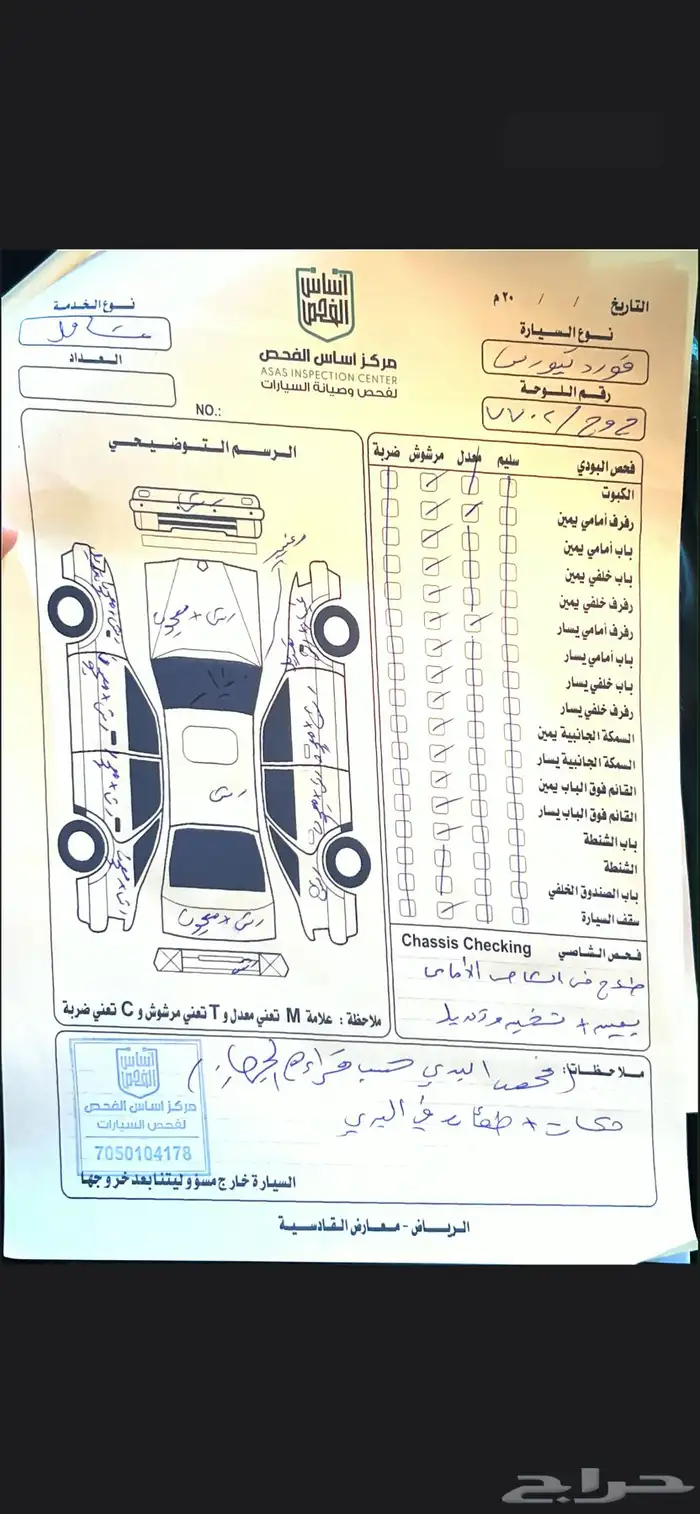 التاريخ / / ٢٠ م
نوع السيارة
فورد تورس
رقم اللوحة
ح و ج / ٧٧٠٢
اساس الفحص
مركز اساس الفحص
ASAS INSPECTION CENTER
لفحص وصيانة السيارات
نوع الخدمة
شامل
العداد
NO.:
الرسم التوضيحي
رش
رش + معجون
رش
رش + معجون
فحص البودي سليم معدل مرشوش ضربة
الكبوت
رفرف أمامي يمين
باب أمامي يمين
باب خلفي يمين
رفرف خلفي يمين
رفرف أمامي يسار
باب أمامي يسار
باب خلفي يسار
رفرف خلفي يسار
السمكة الجانبية يمين
السمكة الجانبية يسار
القائم فوق الباب يمين
القائم فوق الباب يسار
باب الشنطة
الشنطة
باب الصندوق الخلفي
سقف السيارة
فحص الشاصي Chassis Checking
في الشاص الأمامي
يمين +
ملاحظة : علامة M تعني معدل و T تعني مرشوش و C تعني ضربة
ملاحظات: (فحص البدي حسب قراءة الجهاز)
حكات + طعات في البدي
اساس الفحص
مركز اساس الفحص
لفحص السيارات
7050104178
السيارة خارج مسؤوليتنا بعد خروجها
الرياض - معارض القادسية
حراج